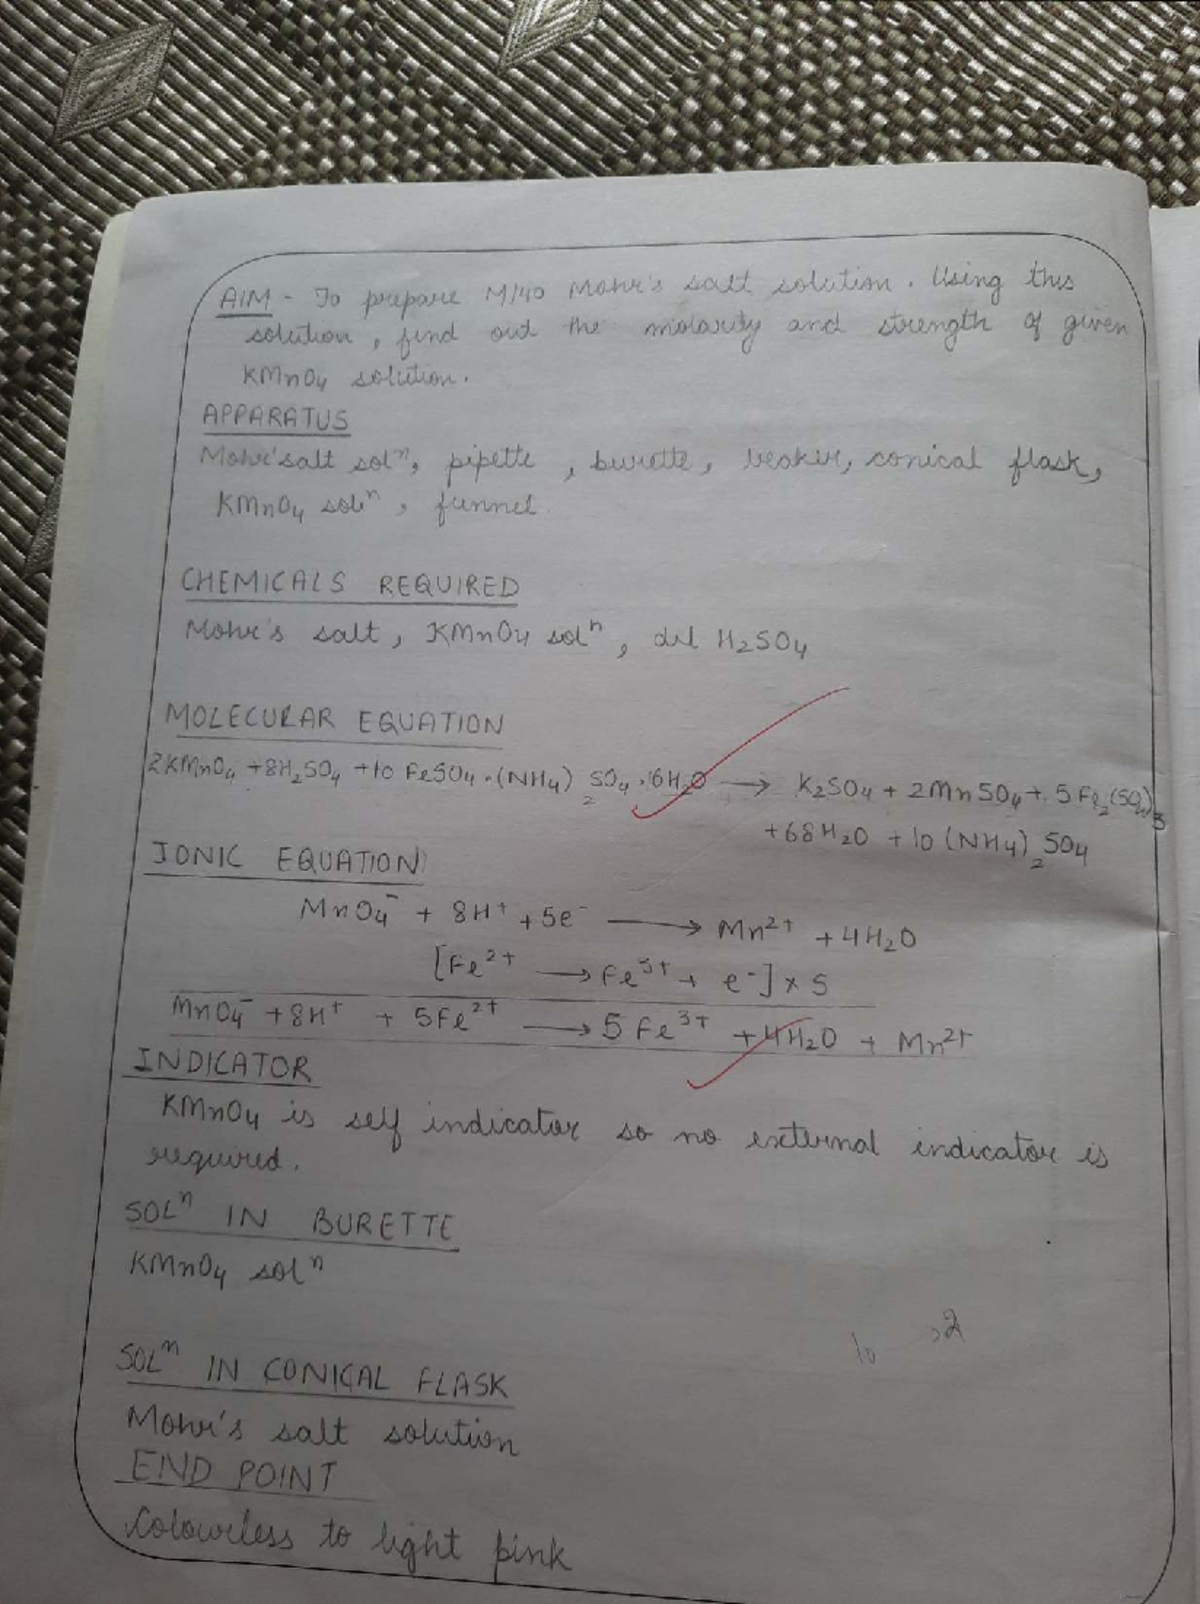 AIM - To prepare M/40 Mohr's salt solution. Using this
solution, find out the molarity and strength of given
KMnO₄ solution.
APPARATUS
Mohr'salt solⁿ, pipette, burette, beaker, conical flask,
KMnO₄ solⁿ, funnel.
CHEMICALS REQUIRED
Mohr's salt, KMnO₄ solⁿ, dil H₂SO₄
MOLECULAR EQUATION
2KMnO₄ + 8H₂SO₄ + 10 FeSO₄.(NH₄)₂SO₄.6H₂O → K₂SO₄ + 2MnSO₄ + 5Fe₂(SO₄)₃
+68H₂O + 10(NH₄)₂SO₄
IONIC EQUATION
MnO₄⁻ + 8H⁺ + 5e⁻ → Mn²⁺ + 4H₂O
[Fe²⁺ → Fe³⁺ + e⁻] × 5
MnO₄⁻ + 8H⁺ + 5Fe²⁺ → 5Fe³⁺ + 4H₂O + Mn²⁺
INDICATOR
KMnO₄ is self indicator so no external indicator is
required.
SOLⁿ IN BURETTE
KMnO₄ solⁿ
SOLⁿ IN CONICAL FLASK
Mohr's salt solution
END POINT
Colourless to light pink